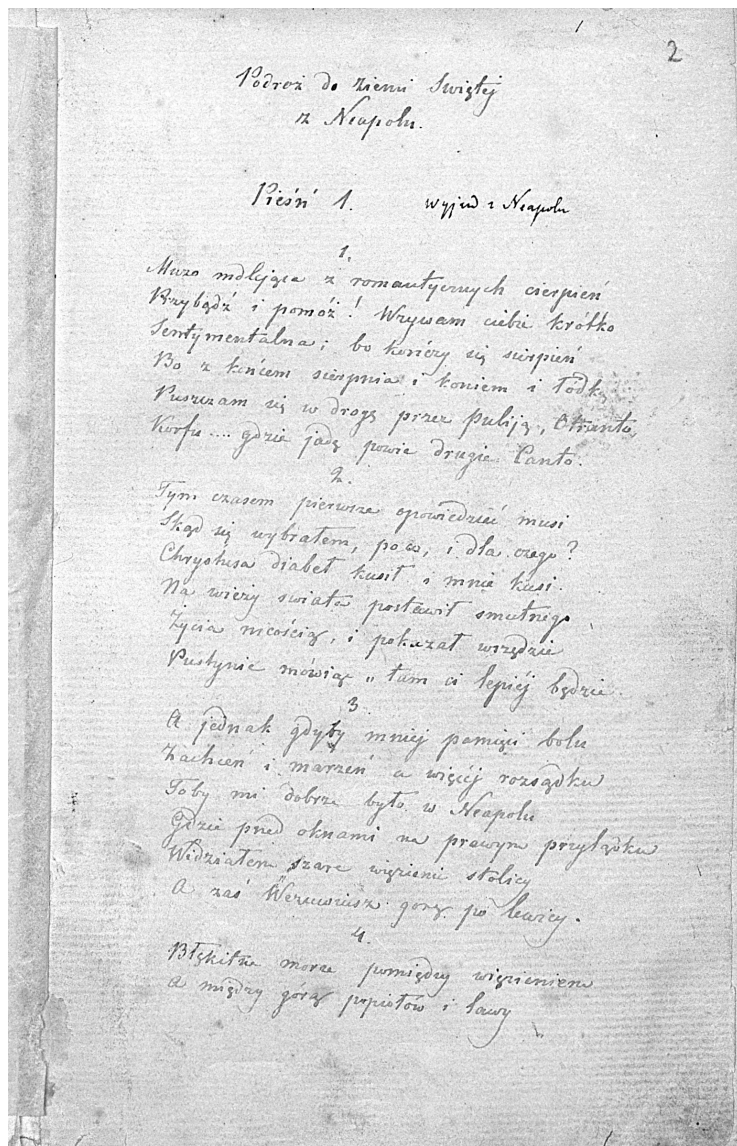 2
Podroż do Ziemi Swiętej
z Neapolu.
Pieśń 1. Wyjazd z Neapolu
1.
Muzo mdlejąca z romantycznych cierpień
Przybądź i pomóż! Wzywam ciebie krótko
Sentymentalna; bo kończy się sierpień
Bo z końcem sierpnia i koniem i łódką
Puszczam się w drogę przez Puliją, Otranto,
Korfu.... gdzie jadę powie drugie Canto.
2.
Tym czasem pierwsze opowiedzieć musi
Skąd się wybrałem, po co, i dla czego?
Chrystusa diabeł kusił i mnie kusi.
Na wieży swiata postawił smutnego
Życia nicością, i pokazał wszędzie
Pustynie mówiąc „tam ci lepiéj będzie.
3.
A jednak gdyby mniéj pamięci bolu
Zachceń i marzeń a więcéj rozsądku
Toby mi dobrze było w Neapolu
Gdzie przed oknami na prawym przylądku
Widziałem szare więzienie stolicy
A zaś Wezuwiusz gorę po lewicy.
4.
Błękitne morze pomiędzy więzieniem
A między górą popiołów i lawy